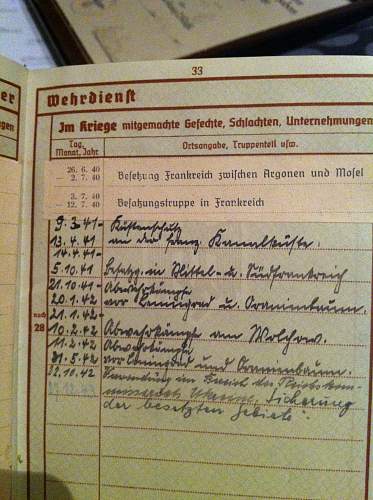 33
Wehrdienst
Im Kriege mitgemachte Gefechte, Schlachten, Unternehmungen
Tag, Monat, Jahr
Ortsangabe, Truppenteil usw.
26. 6. 40
2. 7. 40
Besetzung Frankreich zwischen Argonen und Mosel
3. 7. 40
— 12. 7. 40
Besatzungstruppe in Frankreich
9. 3. 41 - Küstenschutz
13. 4. 41 an der franz. Kanalküste.
14. 4. 41 -
5. 10. 41 Besatzg. in Mittel- u. Südfrankreich
21. 10. 41 - Abwehrkämpfe
20. 1. 42 vor Leningrad u. Oranienbaum.
21. 1. 42 -
nach
28
10. 2. 42 Abwehrkämpfe am Wolchow.
11. 2. 42 Abwehrkämpfe
31. 5. 42 vor Leningrad und Oranienbaum.
Verwendung im Bereich des Reichskom-
missariats Ukraine, Sicherung
der besetzten Gebiete.